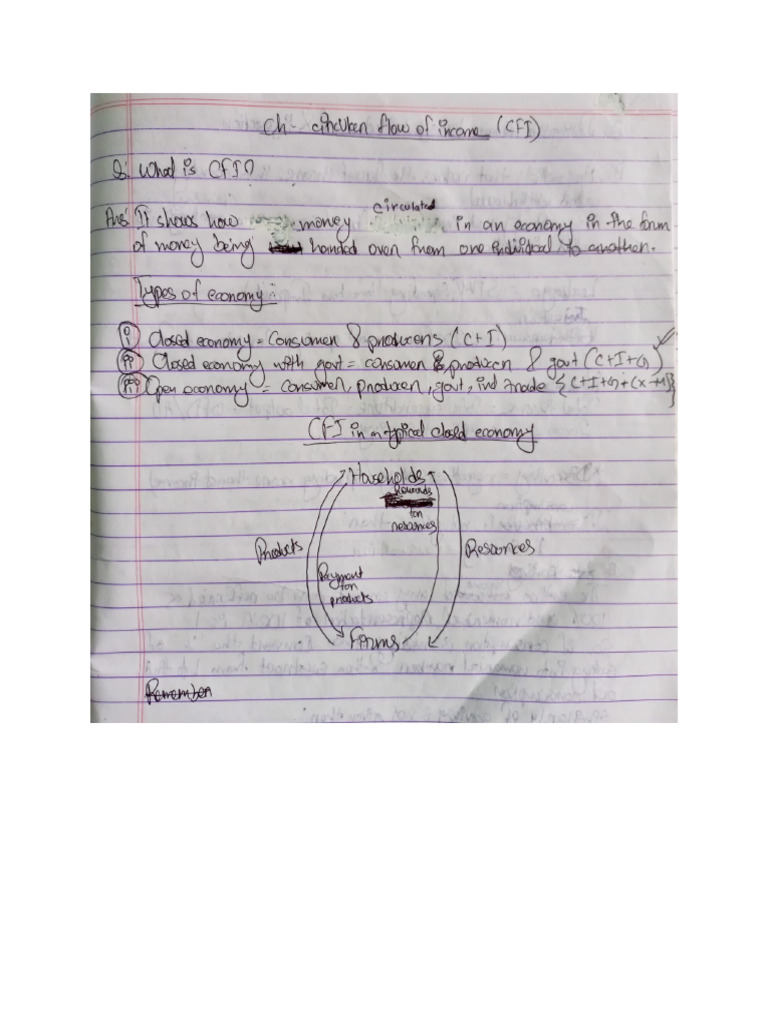 Ch- circular flow of income (CFI)
Q: What is CFI?
Ans: It shows how money circulated in an economy in the form
of money being handed over from one individual to another.
Types of economy:
(i) Closed economy = Consumer & producers (C+I)
(ii) Closed economy with govt = consumer & producer & govt (C+I+G)
(iii) Open economy = Consumer, producer, govt, ind trade {C+I+G+(X-M)}
CFI in a typical closed economy
Households
Rewards
for
resources
Products
Resources
Payment
for
products
Firms
Remember